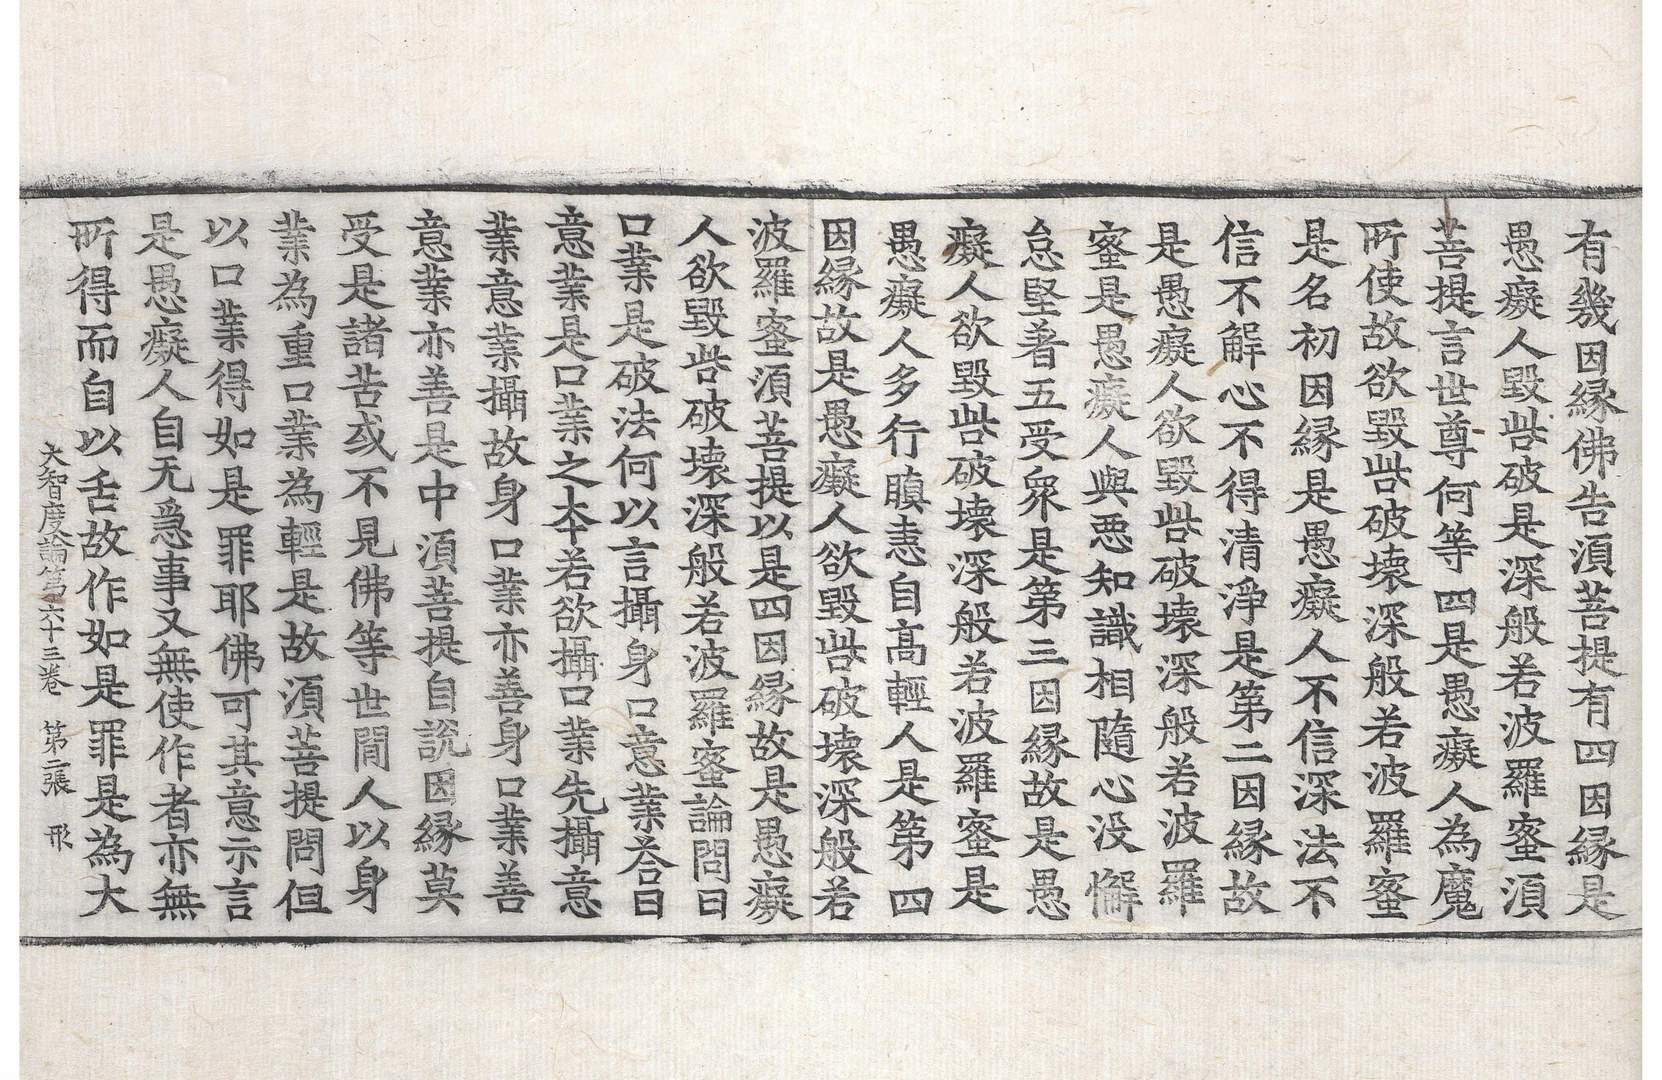 有幾因縁佛告湏菩提有四因縁是
愚癡人毀呰破是深般若波羅蜜湏
菩提言世尊何等四是愚癡人為魔
所使故欲毀呰破壞深般若波羅蜜
是名初因縁是愚癡人不信深法不
信不解心不得清淨是第二因縁故
是愚癡人欲毀呰破壞深般若波羅
蜜是愚癡人與惡知識相隨心没懈
怠堅著五受衆是第三因縁故是愚
癡人欲毀呰破壞深般若波羅蜜是
愚癡人多行瞋恚自高輕人是第四
因縁故是愚癡人欲毀呰破壞深般若
波羅蜜湏菩提以是四因縁故是愚癡
人欲毀呰破壞深般若波羅蜜論問曰
口業是破法何以言攝身口意業荅曰
意業是口業之本若欲攝口業先攝意
業意業攝故身口業亦善身口業善
意業亦善是中湏菩提自説因縁莫
受是諸苦或不見佛等世間人以身
業為重口業為輕是故湏菩提問但
以口業得如是罪耶佛可其意示言
是愚癡人自无急事又無使作者亦無
所得而自以舌故作如是罪是為大
大智度論第六十三卷　第二張　形